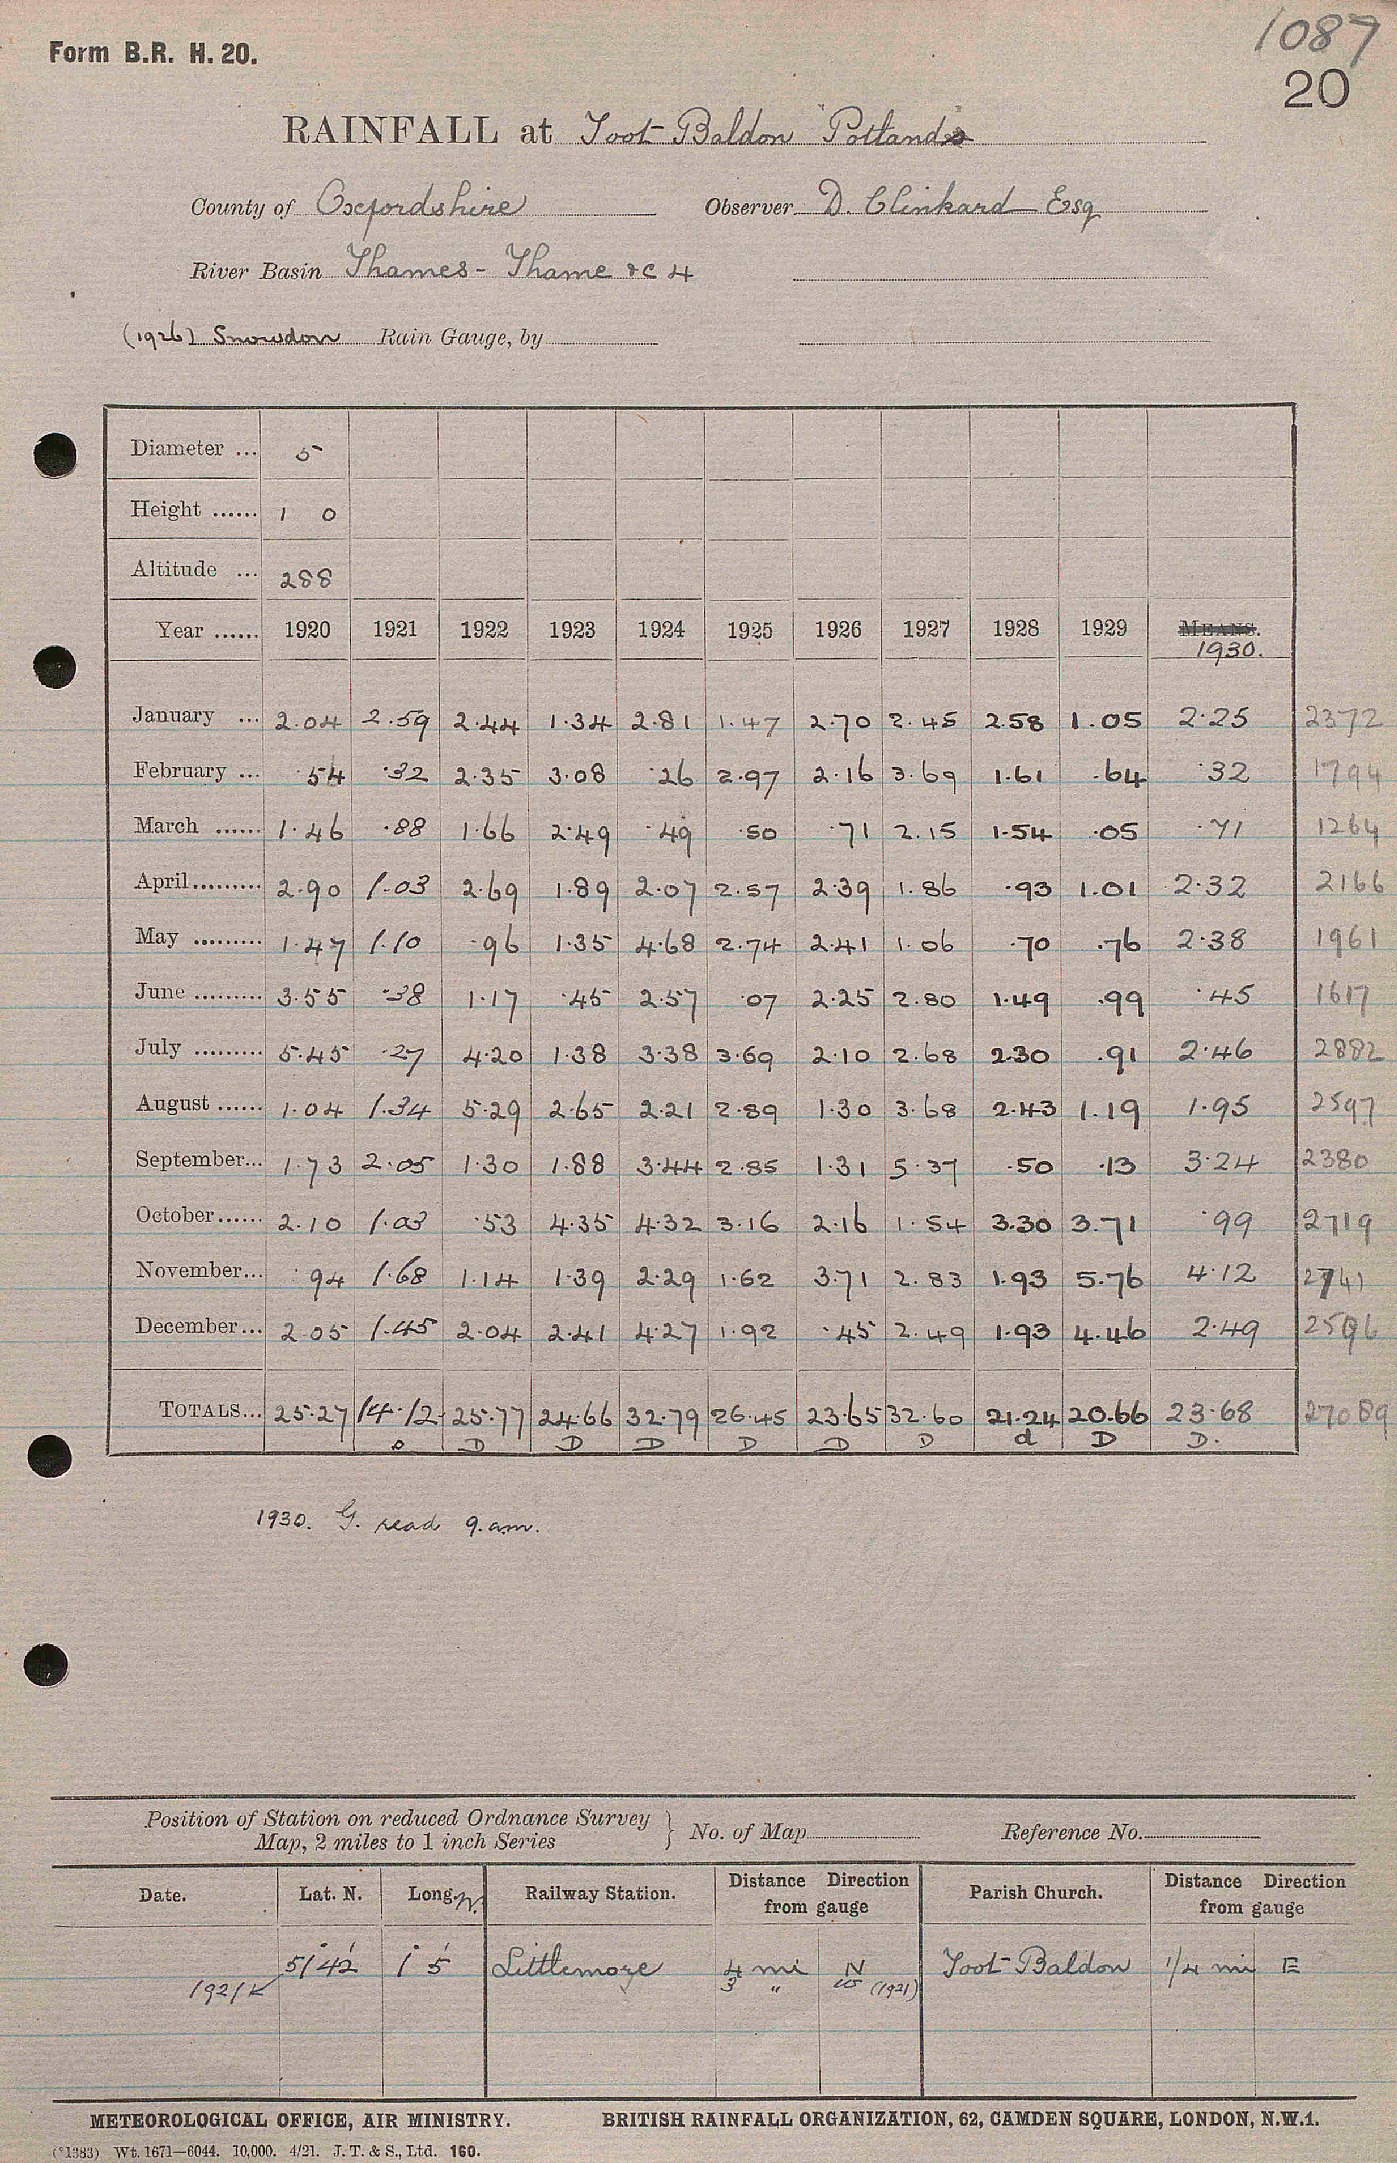 Form B.R. H. 20.
1087
20
RAINFALL at Toot Baldon "Potlands"
County of Oxfordshire Observer D. Clinkard Esq
River Basin Thames - Thame &c 4
(1926) Snowdon Rain Gauge, by
Diameter ... 5
Height ...... 1 0
Altitude ... 288
Year ...... 1920 1921 1922 1923 1924 1925 1926 1927 1928 1929 MEANS.
1930.
January ... 2.04 2.59 2.44 1.34 2.81 1.47 2.70 2.45 2.58 1.05 2.25 2372
February ... .54 .32 2.35 3.08 .26 2.97 2.16 3.69 1.61 .64 .32 1794
March ...... 1.46 .88 1.66 2.49 .49 .50 .71 2.15 1.54 .05 .71 1264
April......... 2.90 1.03 2.69 1.89 2.07 2.57 2.39 1.86 .93 1.01 2.32 2166
May ......... 1.47 1.10 .96 1.35 4.68 2.74 2.41 1.06 .70 .76 2.38 1961
June ......... 3.55 .38 1.17 .45 2.57 .07 2.25 2.80 1.49 .99 .45 1617
July ......... 5.45 .27 4.20 1.38 3.38 3.69 2.10 2.68 2.30 .91 2.46 2882
August ...... 1.04 1.34 5.29 2.65 2.21 2.89 1.30 3.68 2.43 1.19 1.95 2597
September... 1.73 2.05 1.30 1.88 3.44 2.85 1.31 5.37 .50 .13 3.24 2380
October...... 2.10 1.03 .53 4.35 4.32 3.16 2.16 1.54 3.30 3.71 .99 2719
November... .94 1.68 1.14 1.39 2.29 1.62 3.71 2.83 1.93 5.76 4.12 2741
December... 2.05 1.45 2.04 2.41 4.27 1.92 .45 2.49 1.93 4.46 2.49 2596
TOTALS... 25.27 14.12 25.77 24.66 32.79 26.45 23.65 32.60 21.24 20.66 23.68 27089
D D D D D D D d D D.
1930. G. read 9.am.
Position of Station on reduced Ordnance Survey
Map, 2 miles to 1 inch Series } No. of Map Reference No.
Date. Lat. N. Long. W. Railway Station. Distance Direction
from gauge Parish Church. Distance Direction
from gauge
51° 42' 1° 5' Littlemore 4 mi N Toot Baldon 1/4 mi E
1921 3 " (1921)
METEOROLOGICAL OFFICE, AIR MINISTRY. BRITISH RAINFALL ORGANIZATION, 62, CAMDEN SQUARE, LONDON, N.W.1.
(*1383) Wt. 1671—6044. 10,000. 4/21. J. T. & S., Ltd. 160.